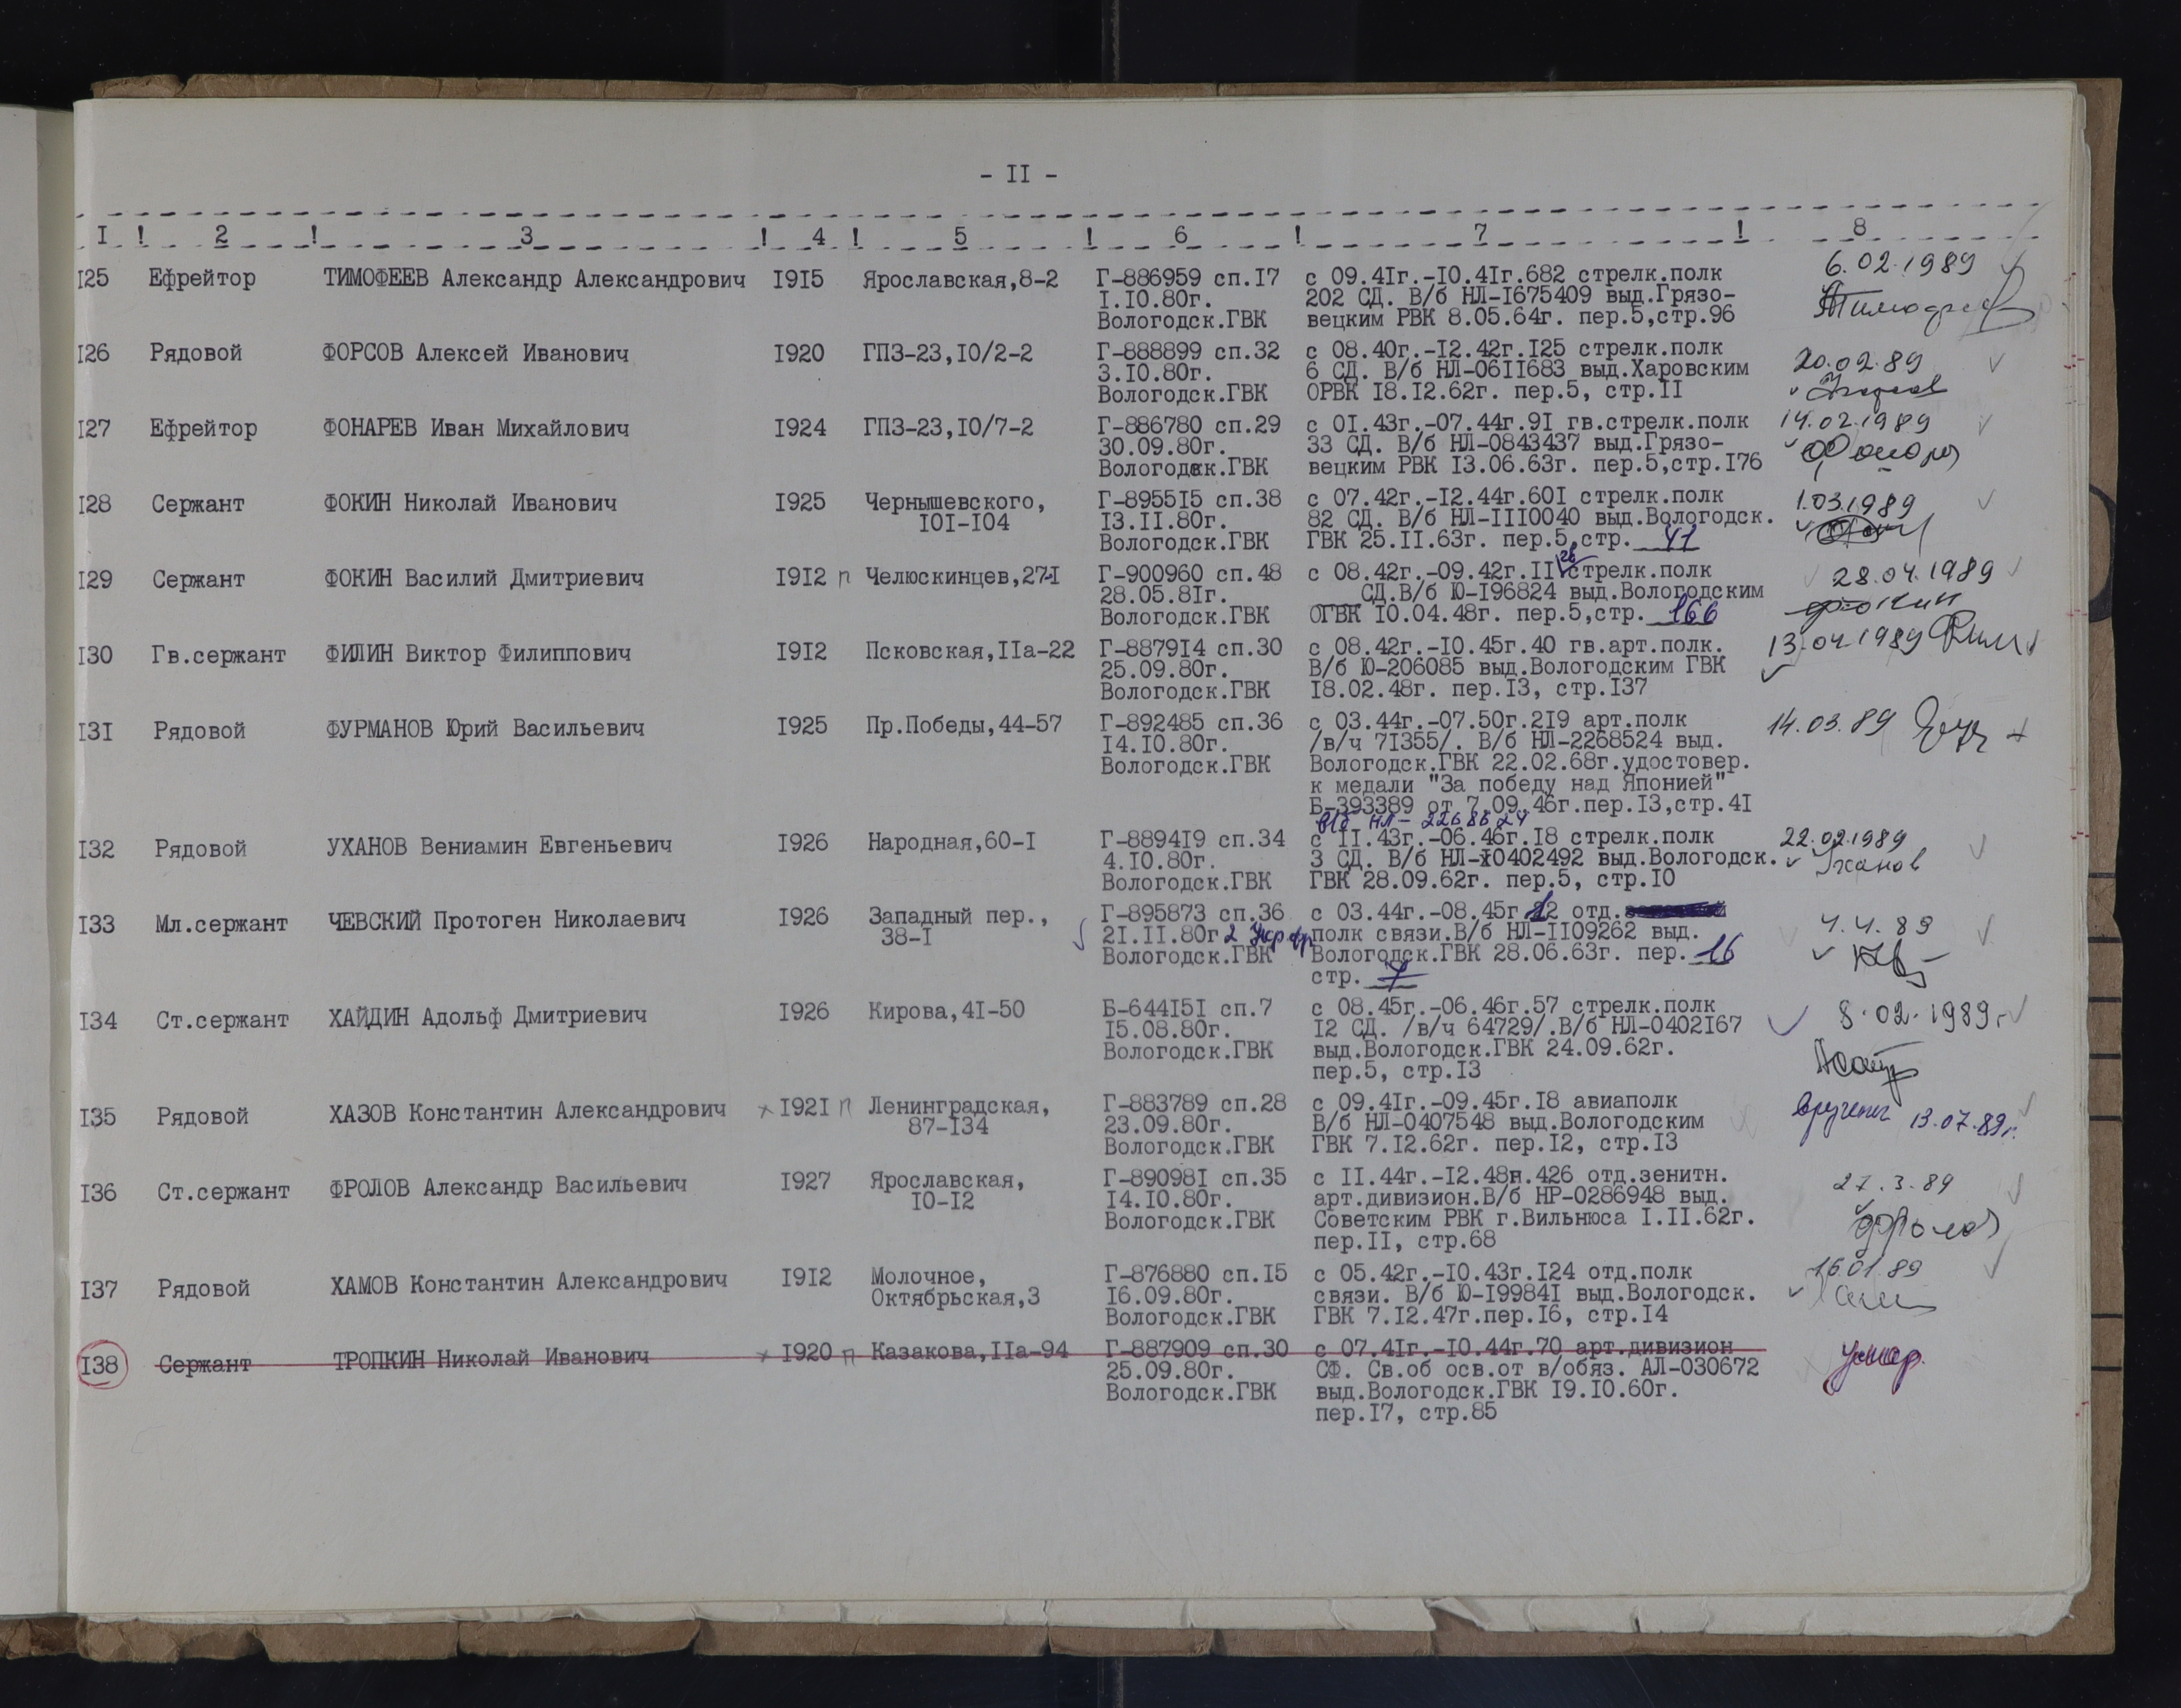 - II -
I ! 2 ! 3 ! 4 ! 5 ! 6 ! 7 ! 8
I25 Ефрейтор ТИМОФЕЕВ Александр Александрович I9I5 Ярославская,8-2 Г-886959 сп.I7 с 09.4Iг.-I0.4Iг.682 стрелк.полк 6.02.1989
I.I0.80г. 202 СД. В/б НЛ-I675409 выд.Грязо-
Вологодск.ГВК вецким РВК 8.05.64г. пер.5,стр.96
I26 Рядовой ФОРСОВ Алексей Иванович I920 ГПЗ-23,I0/2-2 Г-888899 сп.32 с 08.40г.-I2.42г.I25 стрелк.полк 20.02.89
3.I0.80г. 6 СД. В/б НЛ-06II683 выд.Харовским
Вологодск.ГВК ОРВК I8.I2.62г. пер.5, стр.II
I27 Ефрейтор ФОНАРЕВ Иван Михайлович I924 ГПЗ-23,I0/7-2 Г-886780 сп.29 с 0I.43г.-07.44г.9I гв.стрелк.полк 14.02.1989
30.09.80г. 33 СД. В/б НЛ-0843437 выд.Грязо-
Вологодск.ГВК вецким РВК I3.06.63г. пер.5,стр.I76
I28 Сержант ФОКИН Николай Иванович I925 Чернышевского, Г-8955I5 сп.38 с 07.42г.-I2.44г.60I стрелк.полк 1.03.1989
I0I-I04 I3.II.80г. 82 СД. В/б НЛ-III0040 выд.Вологодск.
Вологодск.ГВК ГВК 25.II.63г. пер.5,стр. 41
I29 Сержант ФОКИН Василий Дмитриевич I9I2 п Челюскинцев,27-I Г-900960 сп.48 с 08.42г.-09.42г.II стрелк.полк 28.04.1989
28.05.8Iг. СД.В/б Ю-I96824 выд.Вологодским
Вологодск.ГВК ОГВК I0.04.48г. пер.5,стр. 166
I30 Гв.сержант ФИЛИН Виктор Филиппович I9I2 Псковская,IIа-22 Г-8879I4 сп.30 с 08.42г.-I0.45г.40 гв.арт.полк. 13.04.1989
25.09.80г. В/б Ю-206085 выд.Вологодским ГВК
Вологодск.ГВК I8.02.48г. пер.I3, стр.I37
I3I Рядовой ФУРМАНОВ Юрий Васильевич I925 Пр.Победы,44-57 Г-892485 сп.36 с 03.44г.-07.50г.2I9 арт.полк 14.03.89
I4.I0.80г. /в/ч 7I355/. В/б НЛ-2268524 выд.
Вологодск.ГВК Вологодск.ГВК 22.02.68г.удостовер.
к медали "За победу над Японией"
Б-393389 от 7.09.46г.пер.I3,стр.4I
в/б НЛ-2268524
I32 Рядовой УХАНОВ Вениамин Евгеньевич I926 Народная,60-I Г-8894I9 сп.34 с II.43г.-06.46г.I8 стрелк.полк 22.02.1989
4.I0.80г. 3 СД. В/б НЛ-0402492 выд.Вологодск. Уханов
Вологодск.ГВК ГВК 28.09.62г. пер.5, стр.I0
I33 Мл.сержант ЧЕВСКИЙ Протоген Николаевич I926 Западный пер., Г-895873 сп.36 с 03.44г.-08.45г 12 отд. 4.4.89
38-I 2I.II.80г 2 Укр фр полк связи.В/б НЛ-II09262 выд.
Вологодск.ГВК Вологодск.ГВК 28.06.63г. пер. 16
стр. 7
I34 Ст.сержант ХАЙДИН Адольф Дмитриевич I926 Кирова,4I-50 Б-644I5I сп.7 с 08.45г.-06.46г.57 стрелк.полк 8.02.1989г
I5.08.80г. I2 СД. /в/ч 64729/.В/б НЛ-0402I67
Вологодск.ГВК выд.Вологодск.ГВК 24.09.62г.
пер.5, стр.I3
I35 Рядовой ХАЗОВ Константин Александрович I92I п Ленинградская, Г-883789 сп.28 с 09.4Iг.-09.45г.I8 авиаполк вручены 13.07.89г.
87-I34 23.09.80г. В/б НЛ-0407548 выд.Вологодским
Вологодск.ГВК ГВК 7.I2.62г. пер.I2, стр.I3
I36 Ст.сержант ФРОЛОВ Александр Васильевич I927 Ярославская, Г-89098I сп.35 с II.44г.-I2.48г.426 отд.зенитн. 27.3.89
I0-I2 I4.I0.80г. арт.дивизион.В/б НР-0286948 выд.
Вологодск.ГВК Советским РВК г.Вильнюса I.II.62г. Фролов
пер.II, стр.68
I37 Рядовой ХАМОВ Константин Александрович I9I2 Молочное, Г-876880 сп.I5 с 05.42г.-I0.43г.I24 отд.полк 16.01.89
Октябрьская,3 I6.09.80г. связи. В/б Ю-I9984I выд.Вологодск.
Вологодск.ГВК ГВК 7.I2.47г.пер.I6, стр.I4
I38 Сержант ТРОПКИН Николай Иванович I920 п Казакова,IIа-94 Г-887909 сп.30 с 07.4Iг.-I0.44г.70 арт.дивизион умер.
25.09.80г. СФ. Св.об осв.от в/обяз. АЛ-030672
Вологодск.ГВК выд.Вологодск.ГВК I9.I0.60г.
пер.I7, стр.85